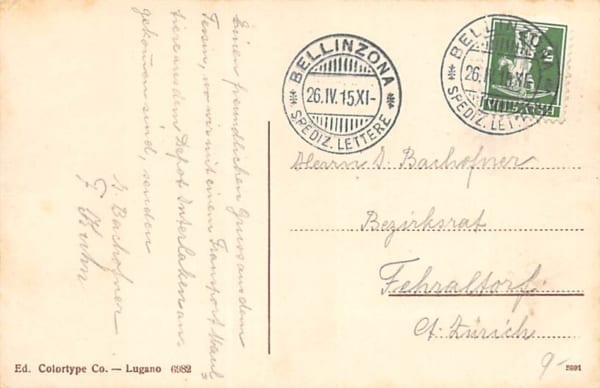 Einen freundlichen Gruss aus dem
Tessin, wo wir mit einem Transport Maul=
tiere aus dem Depot Interlaken an=
gekommen sind, senden
J. Bachofner
F. Kuhn
BELLINZONA
26.IV.15.XI-
SPEDIZ. LETTERE
BELLINZONA
26.IV.15.XI-
SPEDIZ. LETTERE
Herrn J. Bachofner
Bezirksrat
Fehraltorf.
Ct. Zürich
9-
Ed. Colortype Co. — Lugano 6982